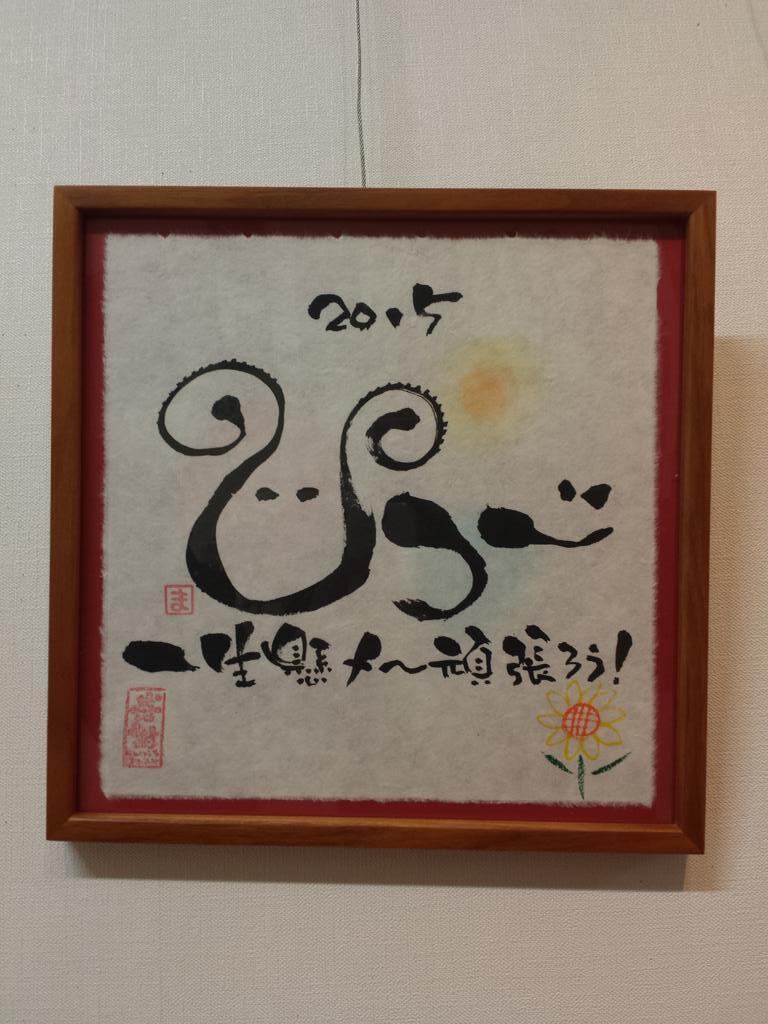 2015
ひつじ
ま
一生懸メ〜頑張ろう!
感謝